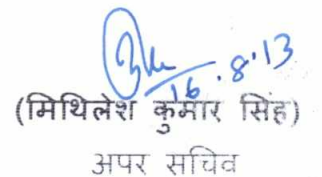 16.8.13
(मिथिलेश कुमार सिंह)
अपर सचिव